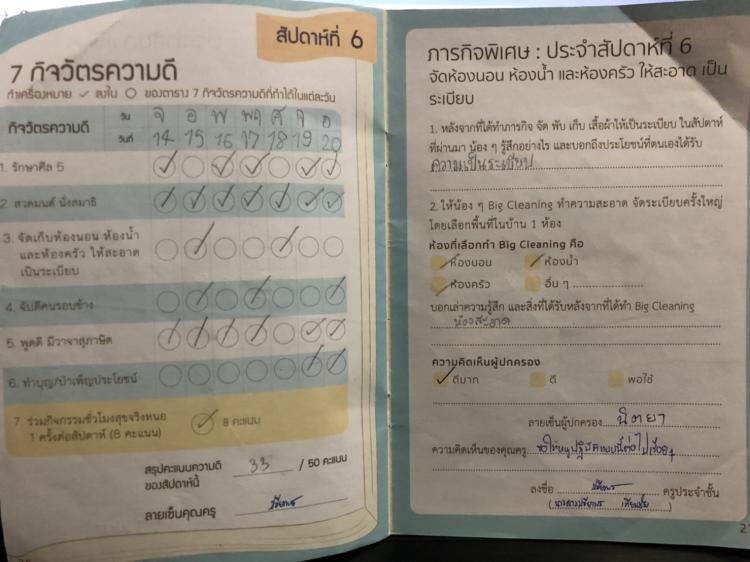 สัปดาห์ที่ 6
7 กิจวัตรความดี
ทำเครื่องหมาย ✓ ลงใน ○ ของตาราง 7 กิจวัตรความดีที่ทำได้ในแต่ละวัน
กิจวัตรความดี วัน จ อ พ พฤ ศ อ
วันที่ 14 15 16 17 18 19 20
1. รักษาศีล 5
2. สวดมนต์ นั่งสมาธิ
3. จัดเก็บห้องนอน ห้องน้ำ
และห้องครัว ให้สะอาด
เป็นระเบียบ
4. จับดีคนรอบข้าง
5. พูดดี มีวาจาสุภาษิต
6. ทำบุญ/บำเพ็ญประโยชน์
7. ร่วมกิจกรรมชั่วโมงสุขจริงหนอ ✓ 8 คะแนน
1 ครั้งต่อสัปดาห์ (8 คะแนน)
สรุปคะแนนความดี 33 / 50 คะแนน
ของสัปดาห์นี้
ลายเซ็นคุณครู
ภารกิจพิเศษ : ประจำสัปดาห์ที่ 6
จัดห้องนอน ห้องน้ำ และห้องครัว ให้สะอาด เป็น
ระเบียบ
1. หลังจากที่ได้ทำภารกิจ จัด พับ เก็บ เสื้อผ้าให้เป็นระเบียบ ในสัปดาห์
ที่ผ่านมา น้อง ๆ รู้สึกอย่างไร และบอกถึงประโยชน์ที่ตนเองได้รับ
ความเป็นระเบียบ
2. ให้น้อง ๆ Big Cleaning ทำความสะอาด จัดระเบียบครั้งใหญ่
โดยเลือกพื้นที่ในบ้าน 1 ห้อง
ห้องที่เลือกทำ Big Cleaning คือ
ห้องนอน ห้องน้ำ
ห้องครัว อื่น ๆ
บอกเล่าความรู้สึก และสิ่งที่ได้รับหลังจากที่ได้ทำ Big Cleaning
ห้องสะอาด
ความคิดเห็นผู้ปกครอง
✓ ดีมาก ดี พอใช้
ลายเซ็นผู้ปกครอง นิตยา
ความคิดเห็นของคุณครู ขอให้หนูปฏิบัติแบบนี้ต่อไปเรื่อยๆ
ลงชื่อ ครูประจำชั้น